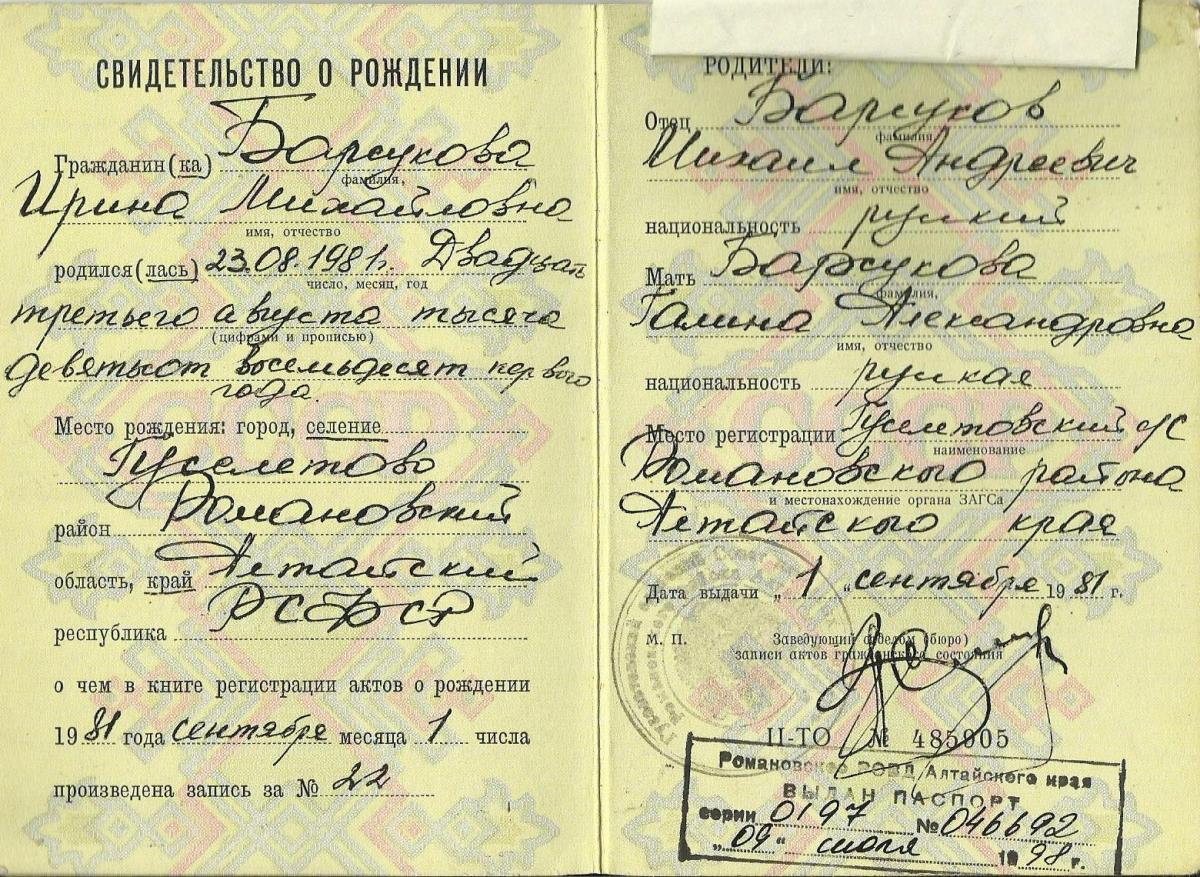 СВИДЕТЕЛЬСТВО О РОЖДЕНИИ
Гражданин (ка) Барсукова
фамилия,
Ирина Михайловна
имя, отчество
родился (лась) 23.08.1981г. Двадцать
число, месяц, год
третьего августа тысяча
(цифрами и прописью)
девятьсот восемьдесят первого
года.
Место рождения: город, селение
Гуселетово
район Романовский
область, край Алтайский
республика РСФСР
о чем в книге регистрации актов о рождении
1981 года сентябре месяца 1 числа
произведена запись за № 22
РОДИТЕЛИ:
Отец Барсуков
фамилия,
Михаил Андреевич
имя, отчество
национальность русский
Мать Барсукова
фамилия,
Галина Александровна
имя, отчество
национальность русская
Место регистрации Гуселетовский с/С
наименование
Романовского района
и местонахождение органа ЗАГСа
Алтайского края
Дата выдачи „ 1 " сентября 1981 г.
М. П. Заведующий отделом (бюро)
записи актов гражданского состояния
II-ТО № 485905
Романовское РОВД Алтайского края
ВЫДАН ПАСПОРТ
серии 0197 № 046692
„09" июля 1998 г.